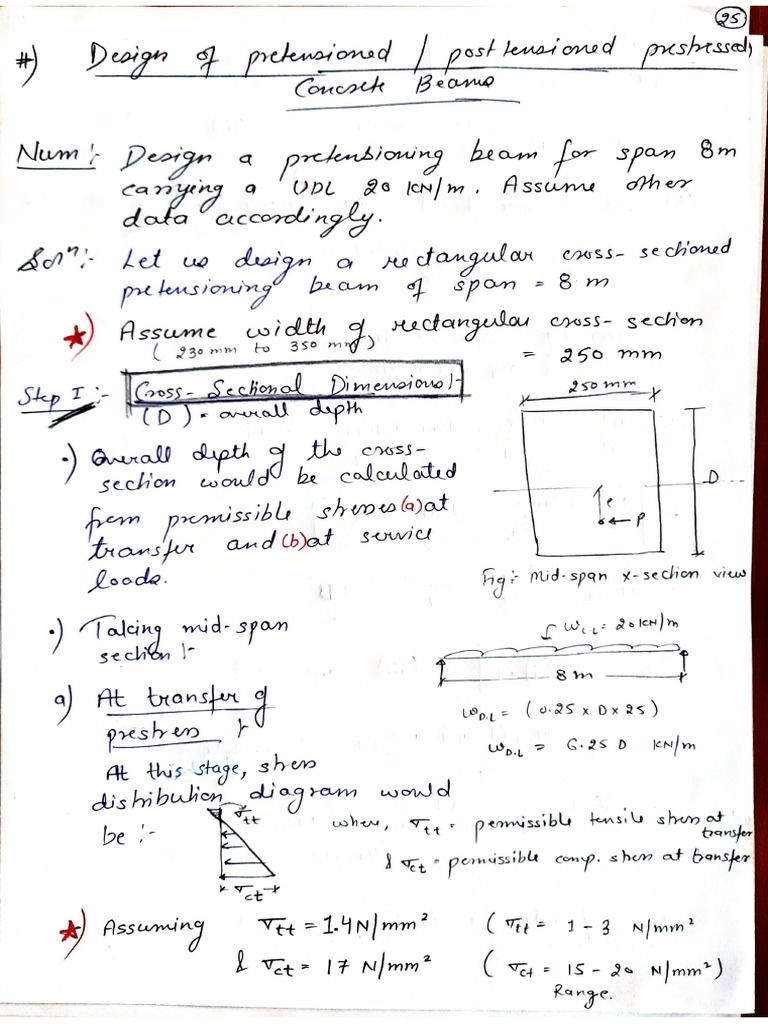 25
#) Design of pretensioned / post tensioned prestressed
Concrete Beams
Num :- Design a pretensioning beam for span 8m
carrying a UDL 20 KN/m. Assume other
data accordingly.
Solⁿ:- Let us design a rectangular cross-sectioned
pretensioning beam of span = 8 m
*) Assume width of rectangular cross-section
( 230 mm to 350 mm)
= 250 mm
Step I :- Cross-Sectional Dimensions :-
(D) = overall depth
250 mm
•) Overall depth of the cross-
section would be calculated
from premissible stresses (a) at
transfer and (b) at service
loads.
D
e
P
Fig:- Mid-span x-section view
•) Taking mid-span
section :-
W L.L = 20 KN/m
8 m
a) At transfer of
prestress :-
W D.L = ( 0.25 x D x 25 )
W D.L = 6.25 D KN/m
At this stage, stress
distribution diagram would
be :-
σtt
σct
where, σtt = permissible tensile stress at
transfer
& σct = permissible comp. stress at transfer
*) Assuming σtt = 1.4 N/mm² ( σtt = 1 - 3 N/mm²
& σct = 17 N/mm² ( σct = 15 - 20 N/mm² )
Range.